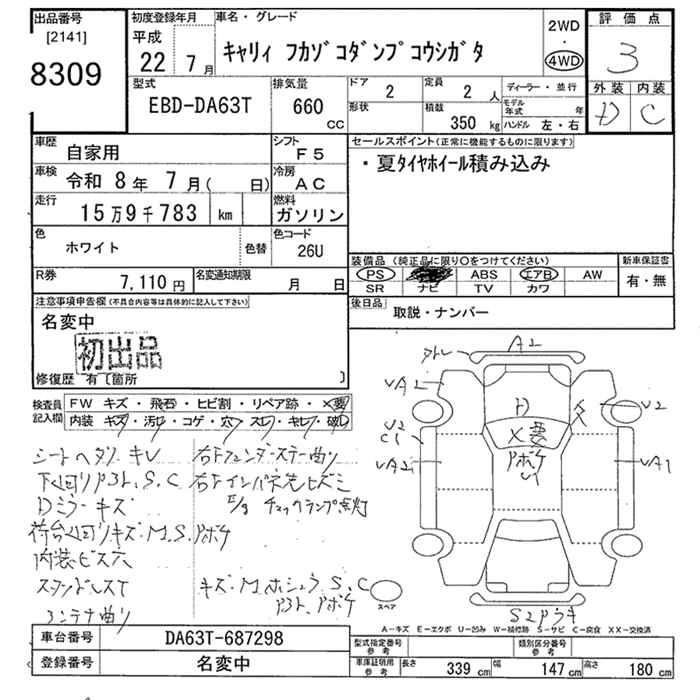 出品番号
[2141]
8309
初度登録年月
平成
22 7月
車名・グレード
キャリィ フカゾコダンプコウシガタ
2WD
・
4WD
評価点
3
外装 内装
D C
型式
EBD-DA63T
排気量
660
CC
ドア
2
定員
2 人
形状
積載
350 kg
ディーラー・並行
モデル年式 年
ハンドル 左・右
車歴
自家用
シフト
F5
車検
令和 8年 7月( 日)
冷房
AC
走行
15万9千783 km
燃料
ガソリン
色
ホワイト
色替
色コード
26U
R券
7,110円
名変通知期限
月 日
セールスポイント(正常に機能するものに限ります)
・夏タイヤホイール積み込み
装備品(純正品に限り○をつけてください)
PS ABS エアB AW
SR ナビ TV カワ
新車保証書
有・無
後日品
取説・ナンバー
注意事項申告欄(不具合内容等は具体的に記入して下さい)
名変中
初出品
修復歴 有〔箇所 〕
検査員記入欄
FW キズ・飛石・ヒビ割・リペア跡・X要
内装 キズ・汚レ・コゲ・穴・スレ・キレ・破レ
シートヘタリ・キレ
下廻りアヨト、S、C
Dミラーキズ
荷台廻りキズ・M、S、アホケ
内装ビス穴
スタッドレスT
コンテナ曲り
右Fフェンダーステー曲り
右Fインパネ先ヒズミ
E/g チェックランプ点灯
キズ・M、ホシュウ、S、C
A2
UA2
U2
C1
UA2
D
X要
U2
UA1
S2アウキ
スペア
A-キズ E-エクボ U-凹み W-補修跡 S-サビ C-腐食 XX-交換済
車台番号
DA63T-687298
登録番号
名変中
型式指定番号
参考
類別区分番号
参考
車庫証明用
参考
長さ 339 cm 幅 147 cm 高さ 180 cm